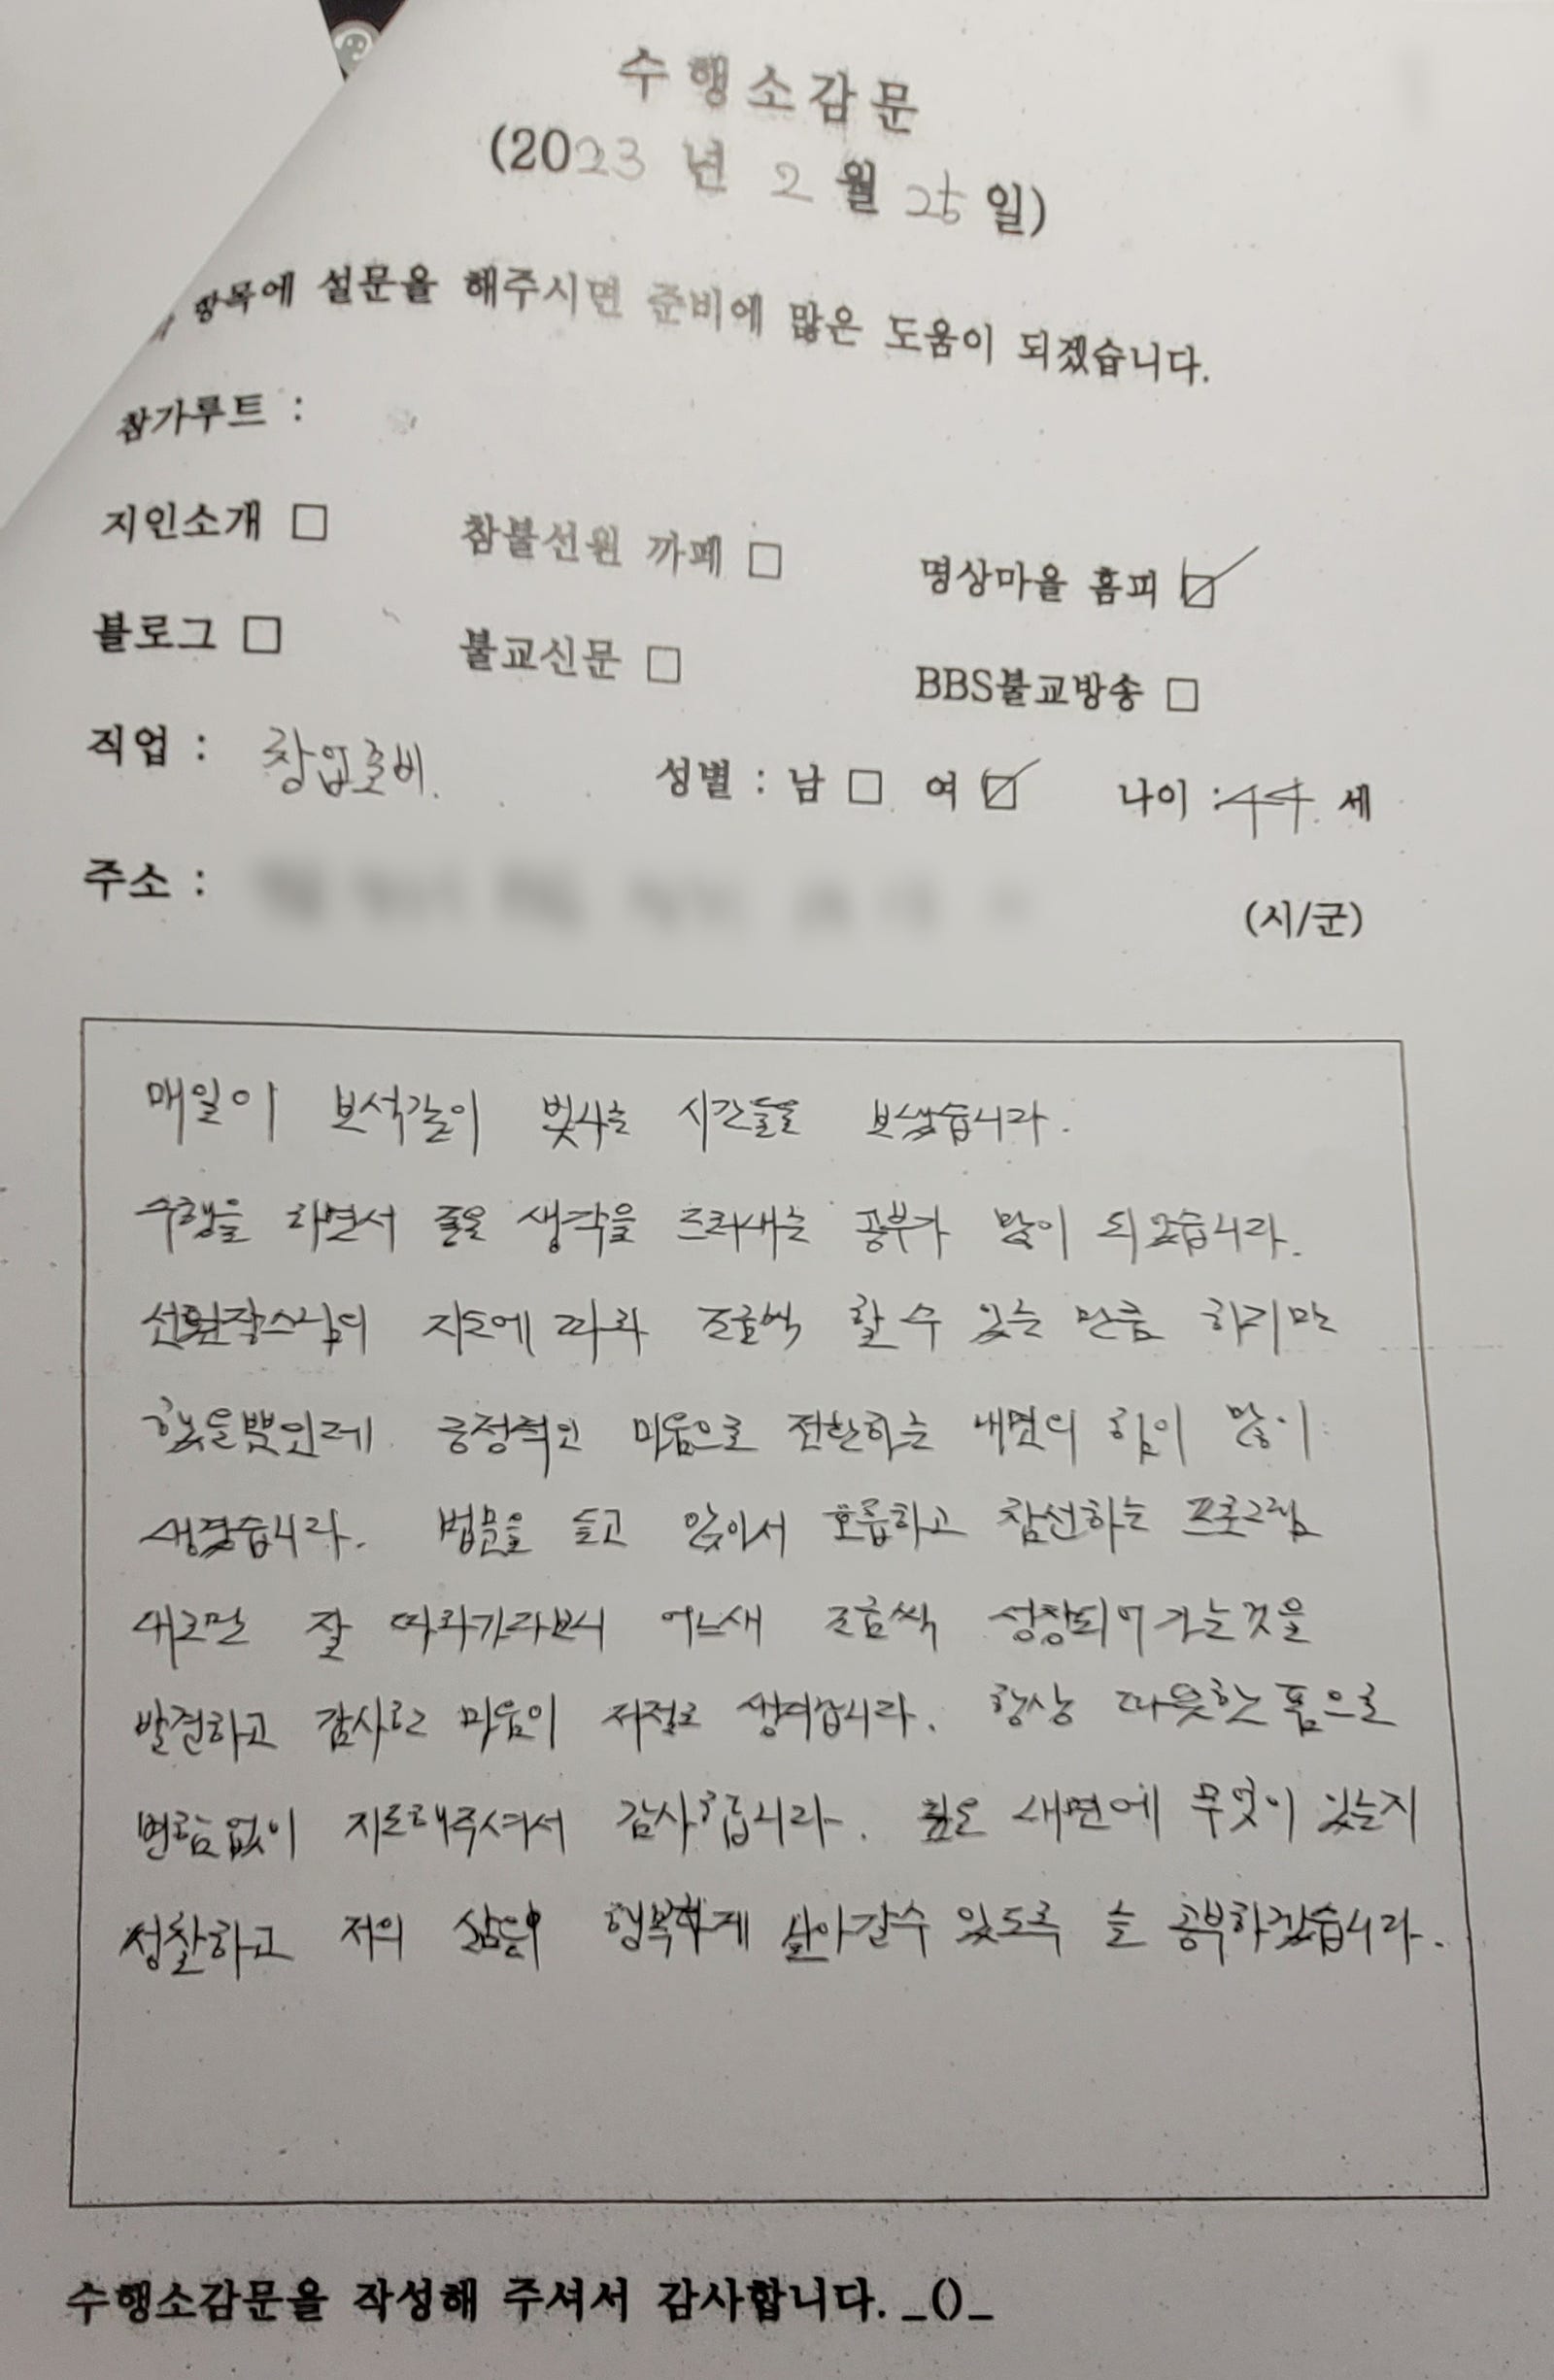 수행소감문
(2023 년 2 월 25 일)
항목에 설문을 해주시면 준비에 많은 도움이 되겠습니다.
참가루트 :
지인소개 □ 참불선원 까페 □ 명상마을 홈피 ☑
블로그 □ 불교신문 □ BBS불교방송 □
직업 : 창업준비. 성별 : 남 □ 여 ☑ 나이 : 44 세
주소 : (시/군)
매일이 보석같이 빛나는 시간들을 보냈습니다.
수행을 하면서 좋은 생각을 드러내는 공부가 많이 되었습니다.
선원장스님의 지도에 따라 조금씩 할 수 있는 만큼 하지만
했을뿐인데 긍정적인 마음으로 전환하는 내면의 힘이 많이
생겼습니다. 법문을 듣고 앉아서 호흡하고 참선하는 프로그램
대로만 잘 따라가다보니 어느새 조금씩 성장되어 가는것을
발견하고 감사한 마음이 저절로 생겨납니다. 항상 따뜻한 품으로
변함없이 지도해주셔서 감사합니다. 깊은 내면에 무엇이 있는지
성찰하고 저의 삶을 행복하게 살아갈수 있도록 늘 공부하겠습니다.
수행소감문을 작성해 주셔서 감사합니다._()_